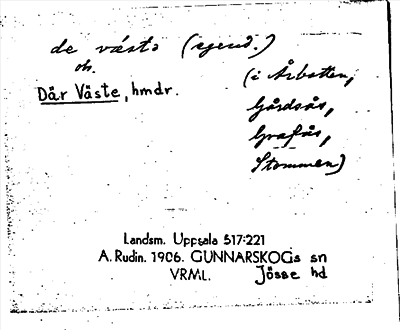 de västə (egend.)
oh.
Där Väste, hmdr.
(i Årbotten,
Gårdsås,
Grafås,
Stommen)
Landsm. Uppsala 517:221
A. Rudin. 1906. GUNNARSKOGs sn
VRML. Jösse hd